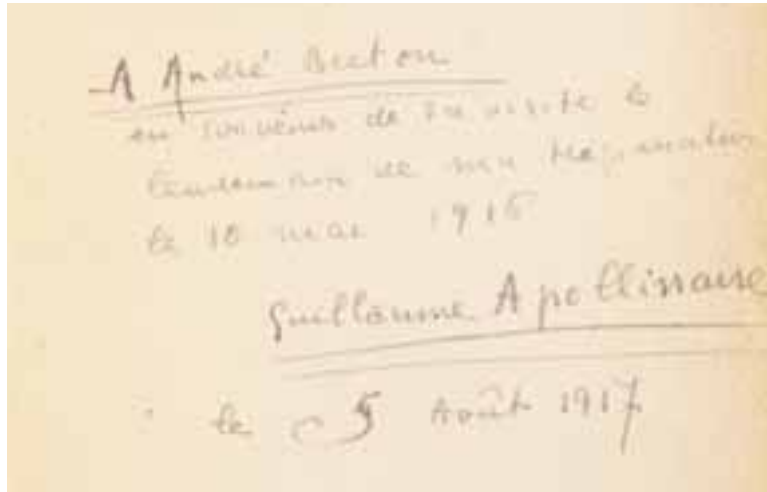 A André Breton
en souvenir de sa visite le
lendemain de ma trépanation
le 10 mai 1916
Guillaume Apollinaire
le 5 Août 1917